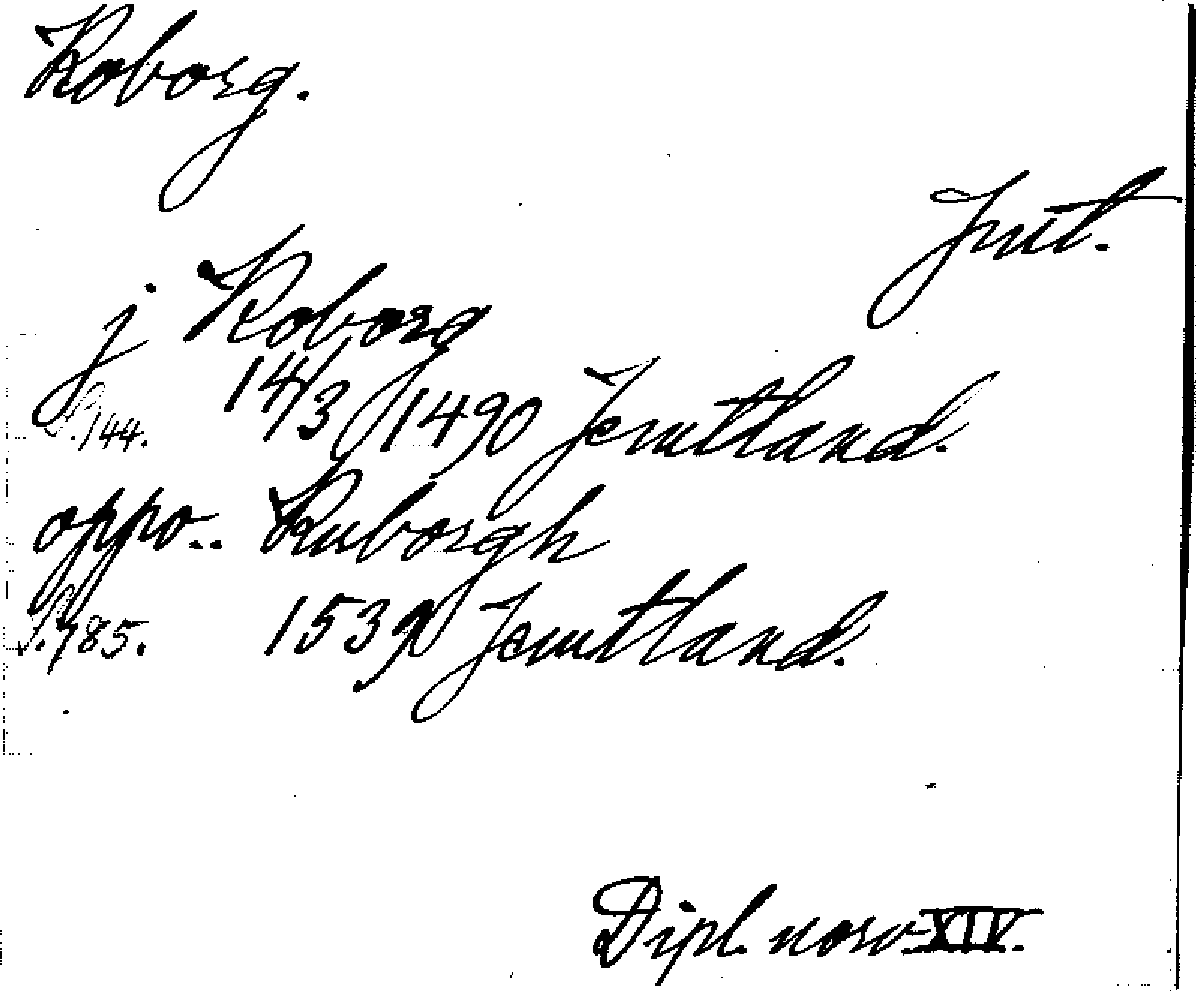 Koborg.
Jmt.
j Koborg
S. 144. 14/3 1490 Jemtland.
oppo.. Kuborgh
S. 785. 1539 Jemtland.
Dipl. norv XIV.